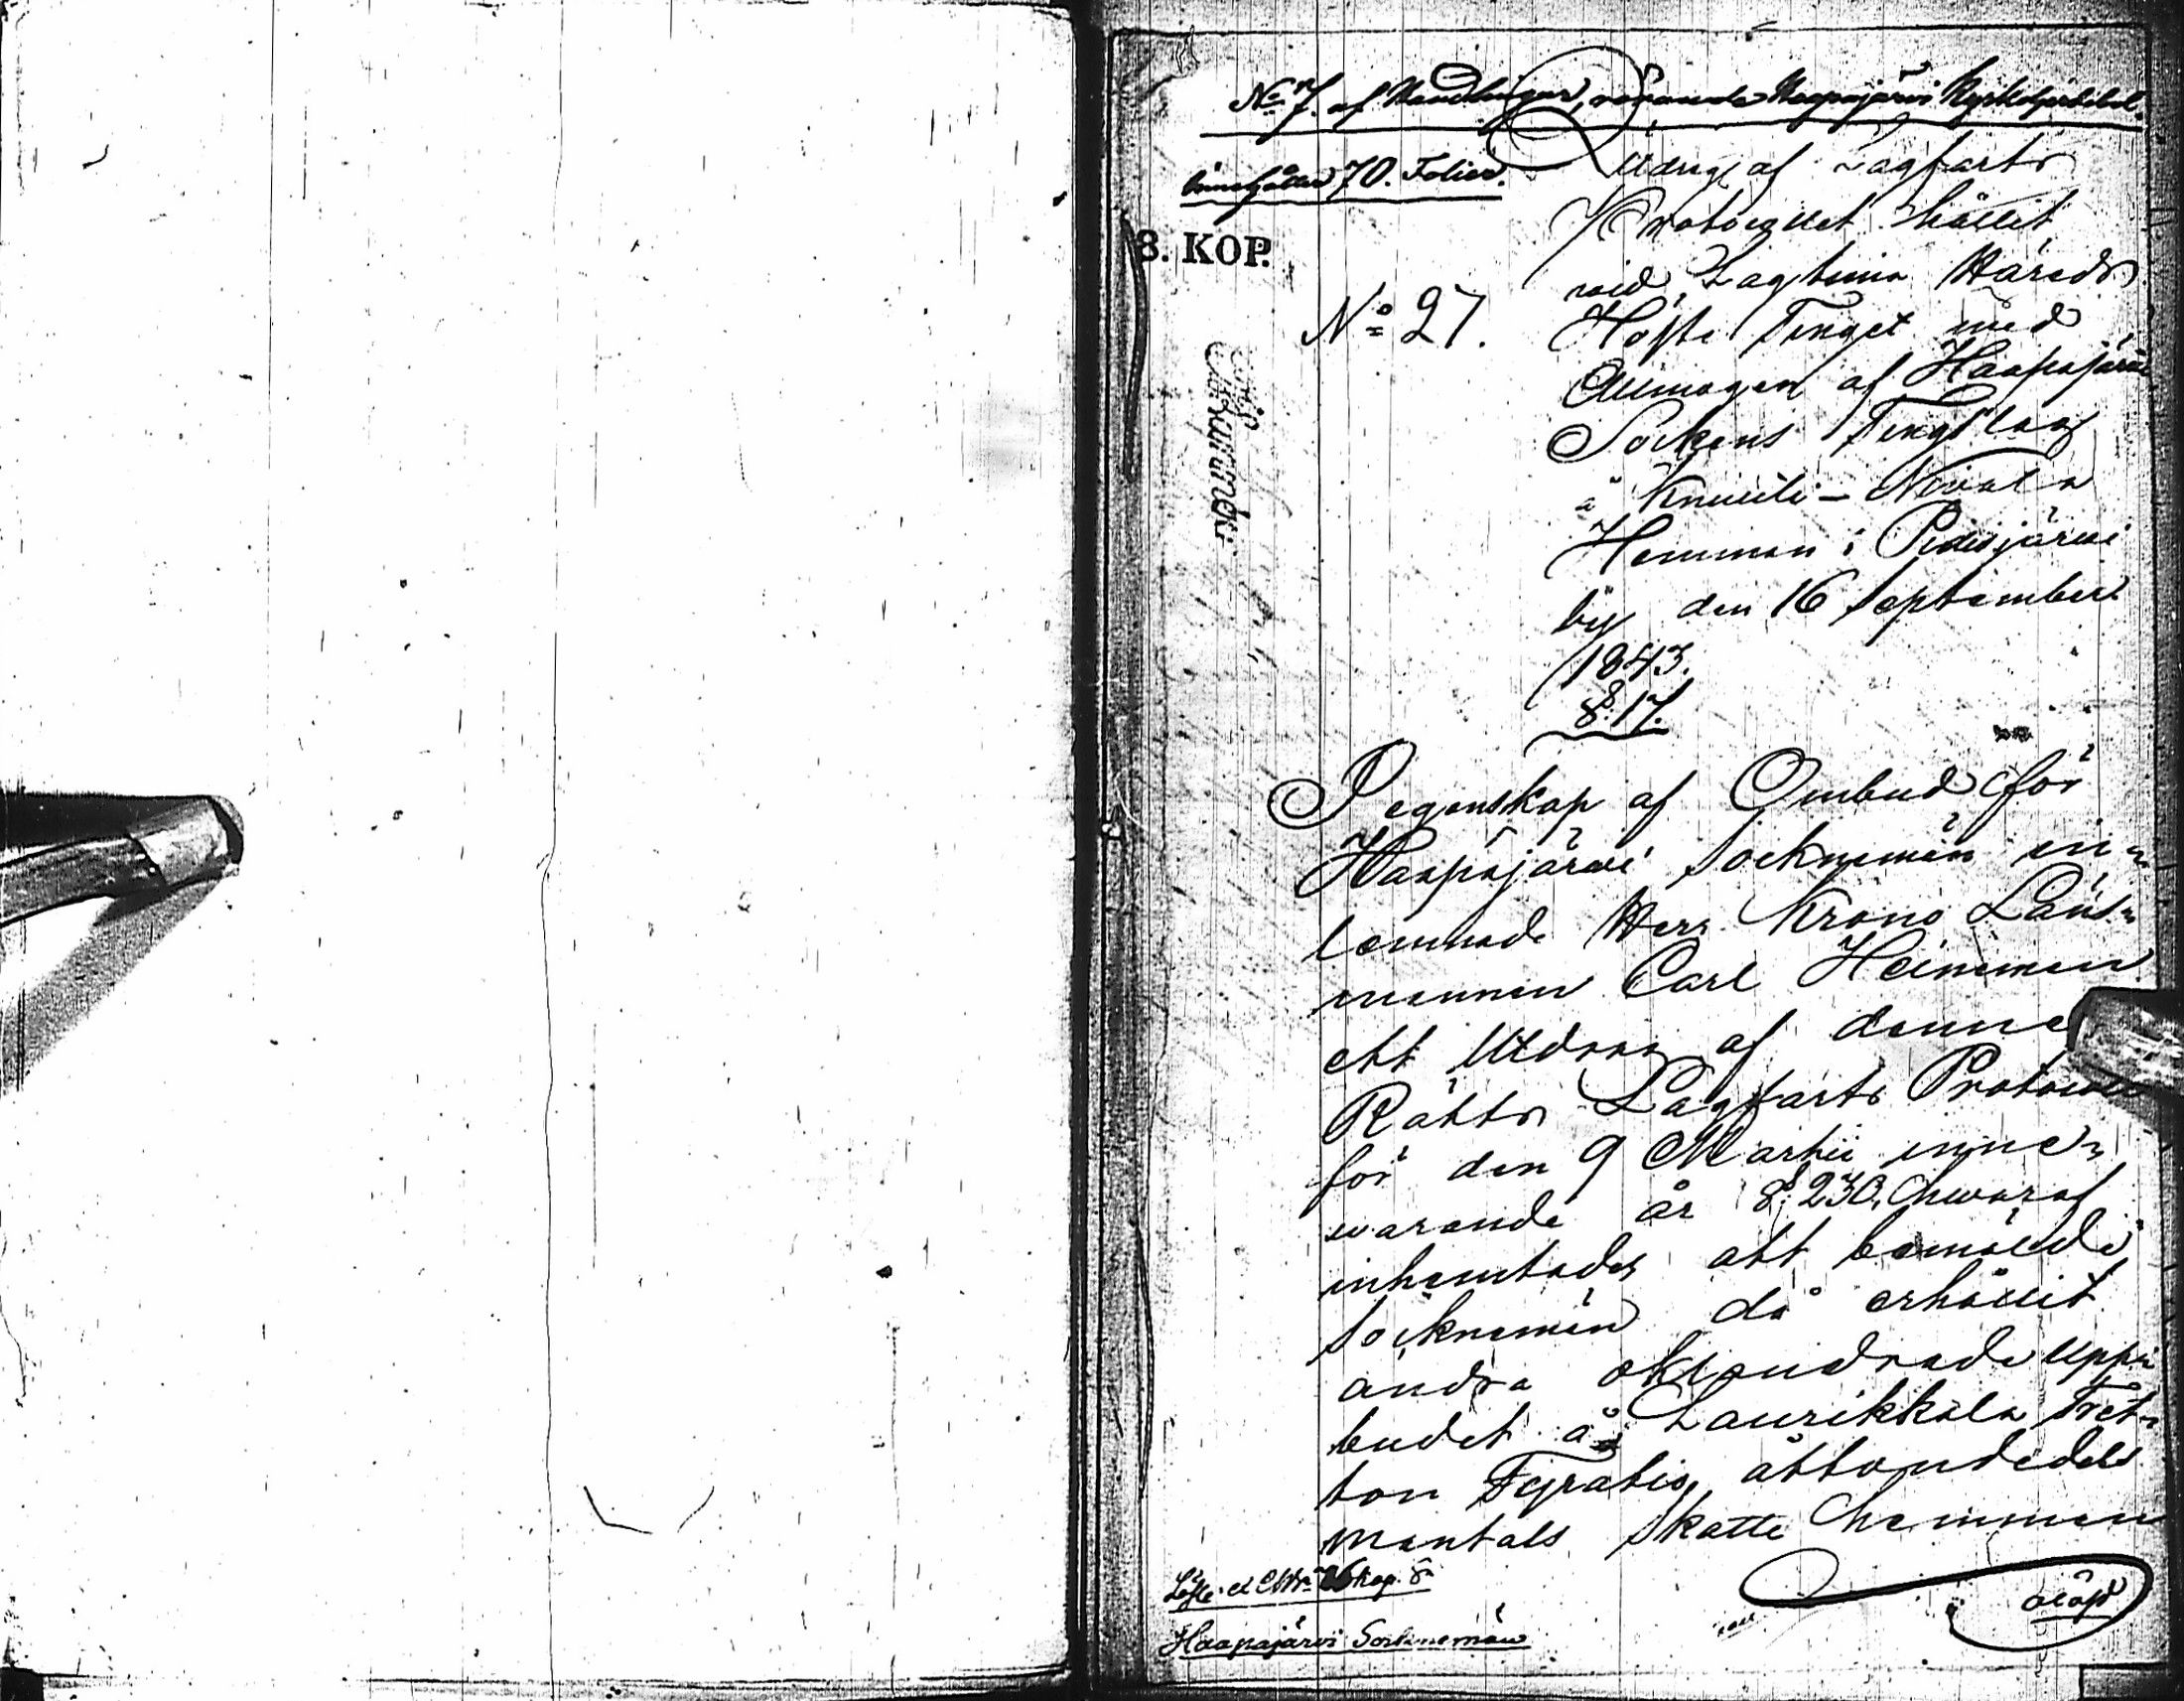 No 7. af Handlingar, rörande Haapajärvi Kyrkoherdebol.
innehåller 70. Folier.
Utdrag af Lagfarts
Protocollet hållit
8. KOP.
vid Lagtima Härads
No 27.
Höste Tinget med
Allmogen af Haapajärvi
Sockens Tingslag
å Knuuti-Nivala
Hemman i Pidisjärvi
by den 16 Septembers
1843.
§. 17.
I egenskap af Ombud för
Haapajärvi Socknemän in-
lemnade Herr Krono Läns-
mannen Carl Heimman
ett Utdrag af denne
Rätts Lagfarts Protocoll
för den 9 Martii inne-
varande år §. 230, hwaraf
inhemtades att bemälde
Socknemän då erhållit
andra oklandrade upp-
budet å Laurikkala Tret-
ton Fyratio åttondedels
mantals Skatte hemman
Haapajärvi Socknemän